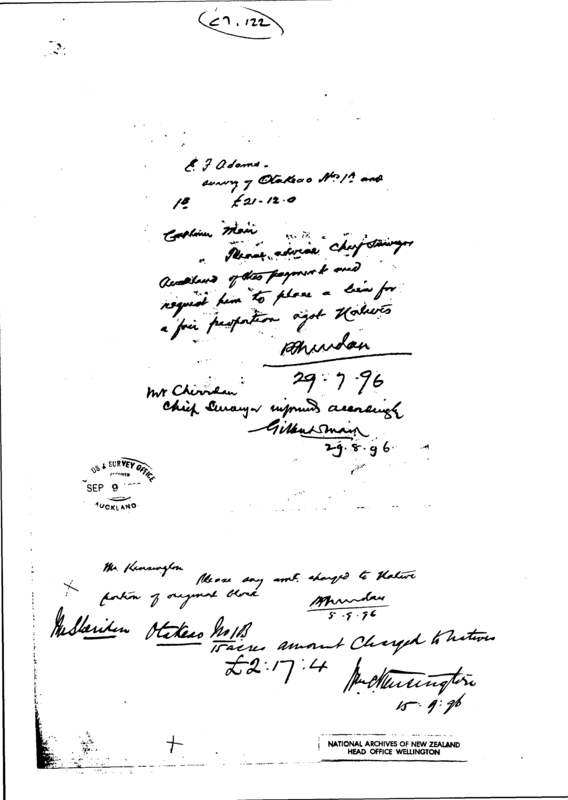 C7.122
E. F Adams.
survey of Otakeao Nos 1A and
1B £21-12.0
Main
Please advise Chief Surveyor
Auckland of this payment and
request him to place a lien for
a fair proportion agst Natives
29-7-96
Mr Sheridan
Chief Surveyor informed accordingly
Gilbert Mair
29.8.96
& SURVEY OFFICE
SEP 9
AUCKLAND
Mr Kensington
Please say amt. charged to Native
portion of original block
5.9.96
Mr Sheridan Otakeao No 1B
15 acres amount Charged to natives
£2:17:4
Kensington
15.9.96
NATIONAL ARCHIVES OF NEW ZEALAND
HEAD OFFICE WELLINGTON